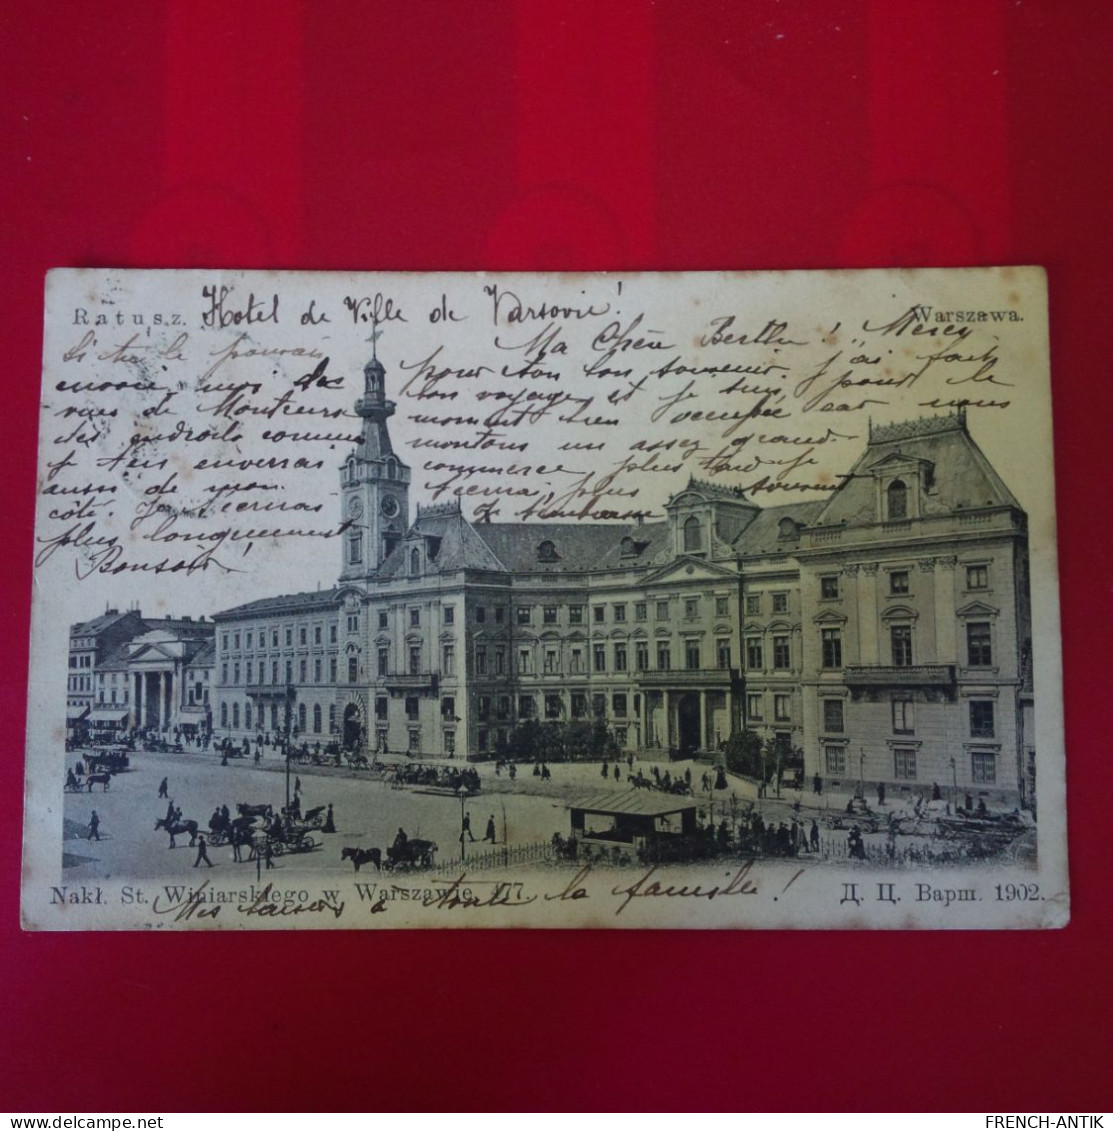 Ratusz.
Hotel de Ville de Varsovie!
Warszawa.
Ma Chère Berthe! Mercy
pour ton bon souvenir. J'ai fait
bon voyage, et je suis pour le
moment bien occupée car nous
montons un assez grand
commerce, plus tard je
t'écrirai plus souvent
Je t'embrasse
Si tu le pouvais
envoie moi des
vues de Montreux
des endroits comme
je t'en enverrai
aussi de mon
côté. Je t'écrirai
plus longuement
Bonsoir
Nakł. St. Winiarskiego w Warszawie. 177.
Д. Ц. Варш. 1902.
Mes baisers à toute la famille!
FRENCH-ANTIK